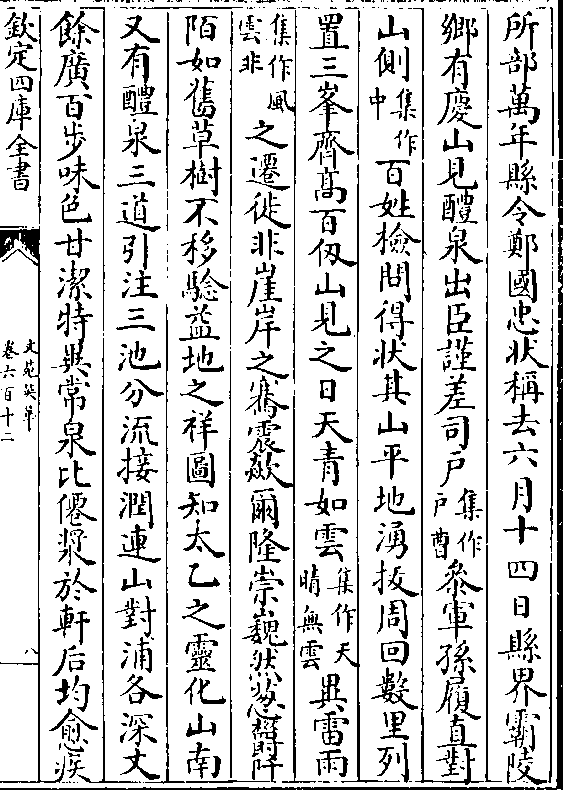 所部萬年縣令鄭國忠狀稱去六月十四日縣界霸陵
鄉有慶山見醴泉出臣謹差司戶集作戶曹參軍孫履直對
山側集作中百姓檢問得狀其山平地湧拔周回數里列
置三峯齊髙百仭山見之日天青如雲集作天晴無雲異雷雨
集作風雲非之遷徙非崖岸之騫震歘爾隆崇巍然葱鬱阡
陌如舊草樹不移驗益地之祥圖知太乙之靈化山南
又有醴泉三道引注三池分流接潤連山對浦各深丈
餘廣百步味色甘潔特異常泉比僊漿於軒后均愈疾
欽定四庫全書
文苑英華
卷六百十二
八